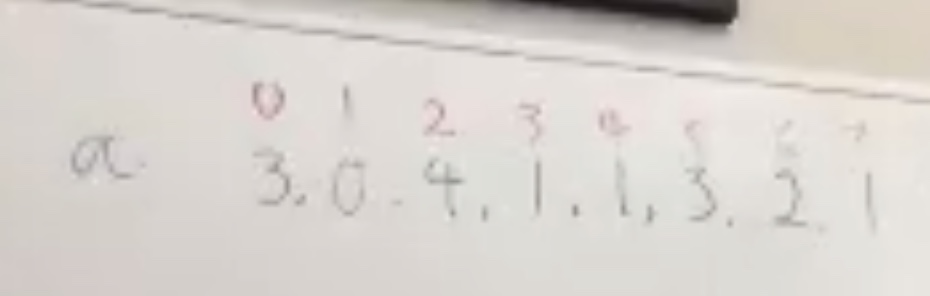 0 1 2 3 4 5 6 7
a 3. 0. 4. 1. 1. 3. 2. 1